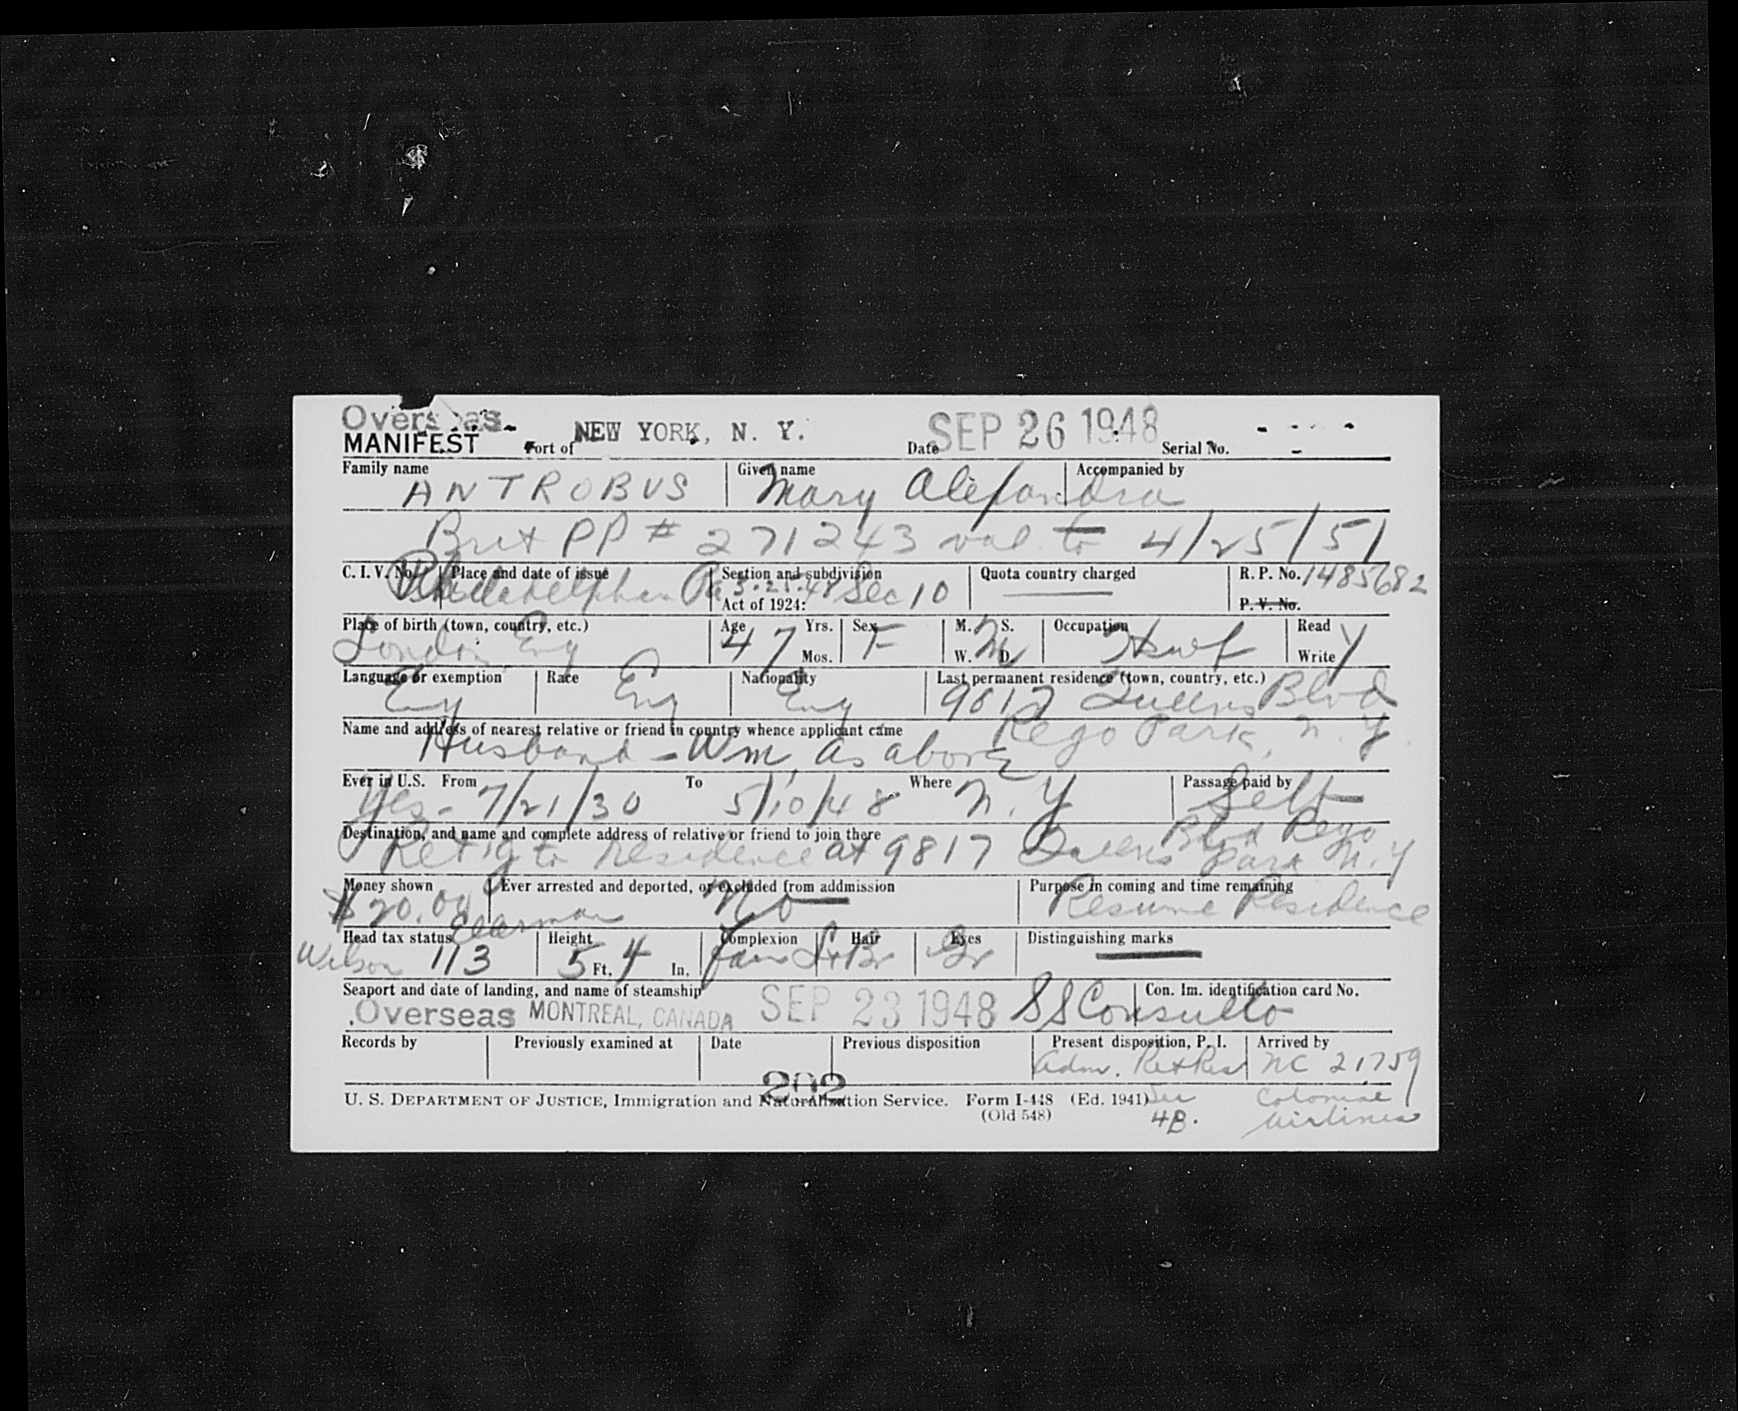 Overseas
MANIFEST Port of NEW YORK, N. Y. Date SEP 26 1948 Serial No.
Family name Given name Accompanied by
ANTROBUS Mary Alexandra
Brit PP # 271243 val to 4/25/51
C. I. V. No. Place and date of issue Section and subdivision Quota country charged R. P. No. 1485682
Philadelphia Pa 3-25-48 Sec 10
Act of 1924: P. V. No.
Place of birth (town, country, etc.) Age Yrs. Sex M. S. Occupation Read
London, Eng 47 Mos. F W. M D. Hswf Write y
Language or exemption Race Nationality Last permanent residence (town, country, etc.)
Eng Eng Eng 9817 Queens Blvd
Name and address of nearest relative or friend in country whence applicant came Rego Park, N. Y
Husband - Wm, as above
Ever in U.S. From To Where Passage paid by
Yes - 7/21/30 5/10/48 N. Y Self
Destination, and name and complete address of relative or friend to join there
Ret'g to residence at 9817 Queens Blvd Rego Park N.Y
Money shown Ever arrested and deported, or excluded from admission Purpose in coming and time remaining
$20.00 No Resume Residence
Head tax status Height Complexion Hair Eyes Distinguishing marks
Wilson 113 5 Ft. 4 In. Fair Lt Br Gr
Seaport and date of landing, and name of steamship Con. Im. identification card No.
Overseas MONTREAL, CANADA SEP 23 1948 SS Consuelo
Records by Previously examined at Date Previous disposition Present disposition, P. I. Arrived by
Adm. Ret Res NC 21759
202
U. S. DEPARTMENT OF JUSTICE, Immigration and Naturalization Service. Form I-448 (Ed. 1941) Sec Colonial
(Old 548) 4B. Airlines